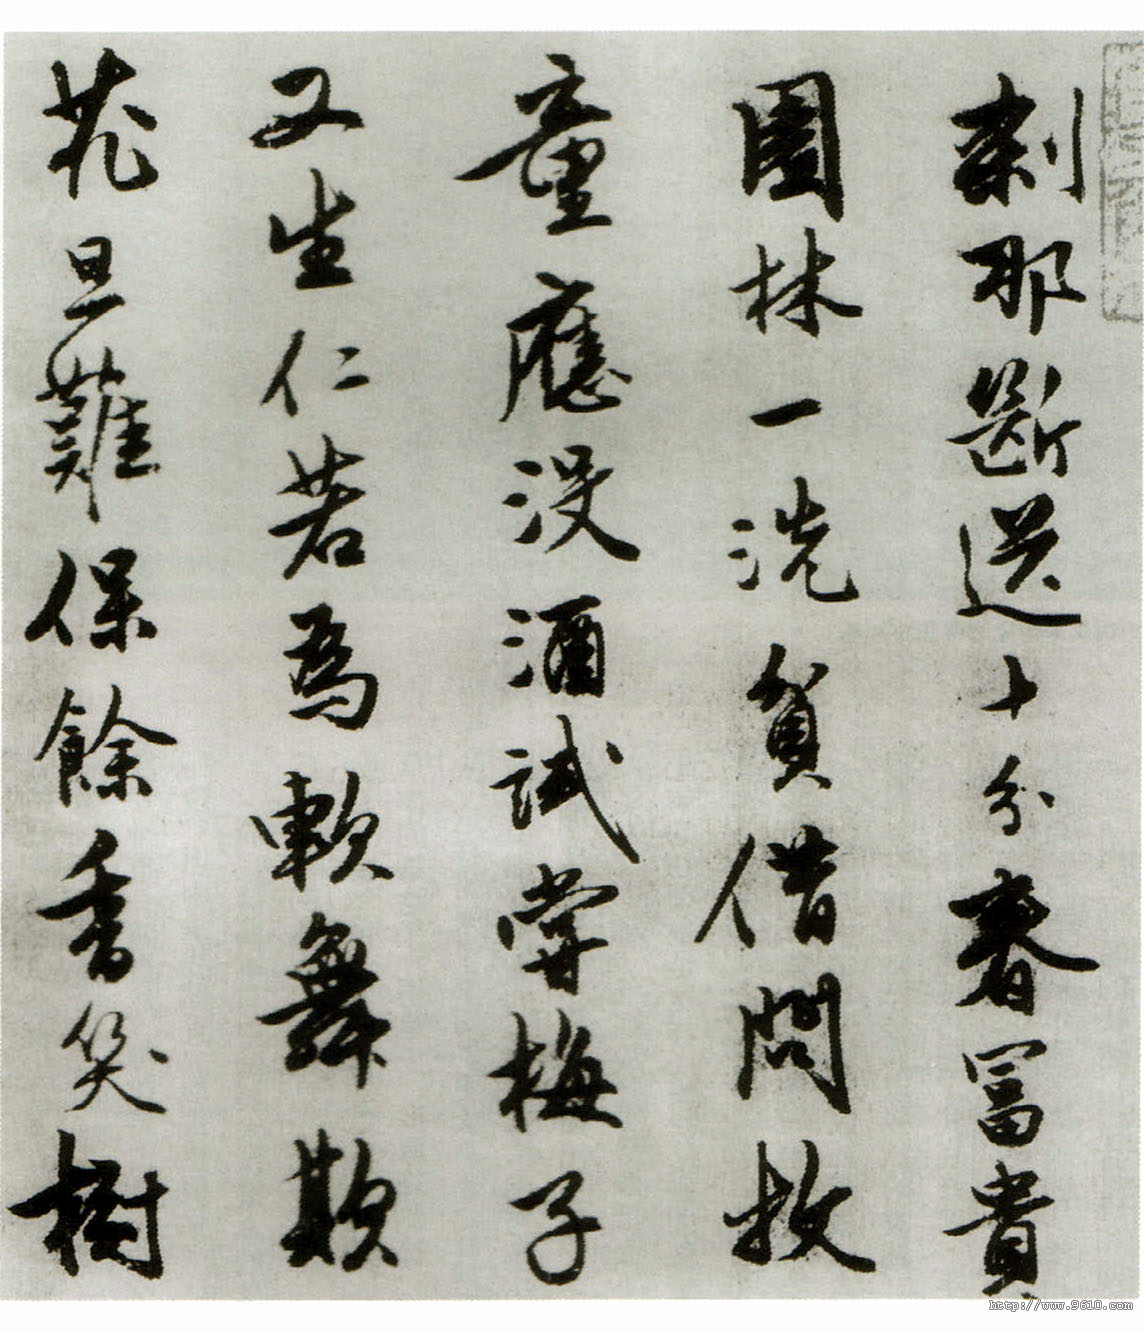 刹那斷送十分春富貴
園林一洗貧借問牧
童應沒酒試嘗梅子
又生仁若爲軟舞欺
花旦難保餘香笑樹
http://www.9610.com